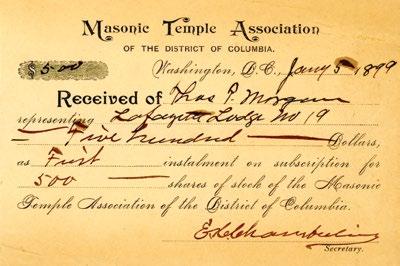 Masonic Temple Association
OF THE DISTRICT OF COLUMBIA.
$ 500
Washington, D.C., Jany 5 1899
Received of Thos P. Morgan
representing Lafayette Lodge No 19
Five hundred Dollars,
as First instalment on subscription for
500 shares of stock of the Masonic
Temple Association of the District of Columbia.
Secretary.